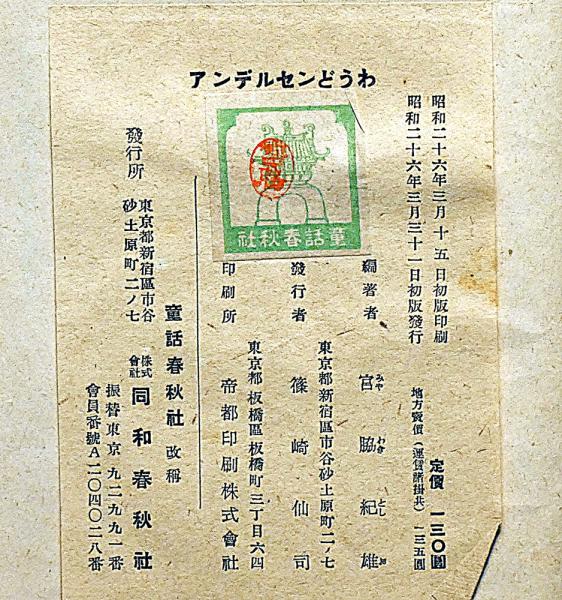 わうどンセルデンア
昭和二十六年三月十五日初版印刷
昭和二十六年三月三十一日初版發行
定價 一三〇圓
地方賣價(運賃諸掛共)一三五圓
童話春秋社
編著者 宮脇紀雄
みや わき とし お
發行者 東京都新宿區市谷砂土原町二ノ七
篠崎仙司
印刷所 東京都板橋區板橋町三丁目六四
帝都印刷株式會社
發行所 東京都新宿區市谷
砂土原町二ノ七
童話春秋社 改稱
株式會社 同和春秋社
振替東京 九二九九一番
會員番號A二〇四〇二八番